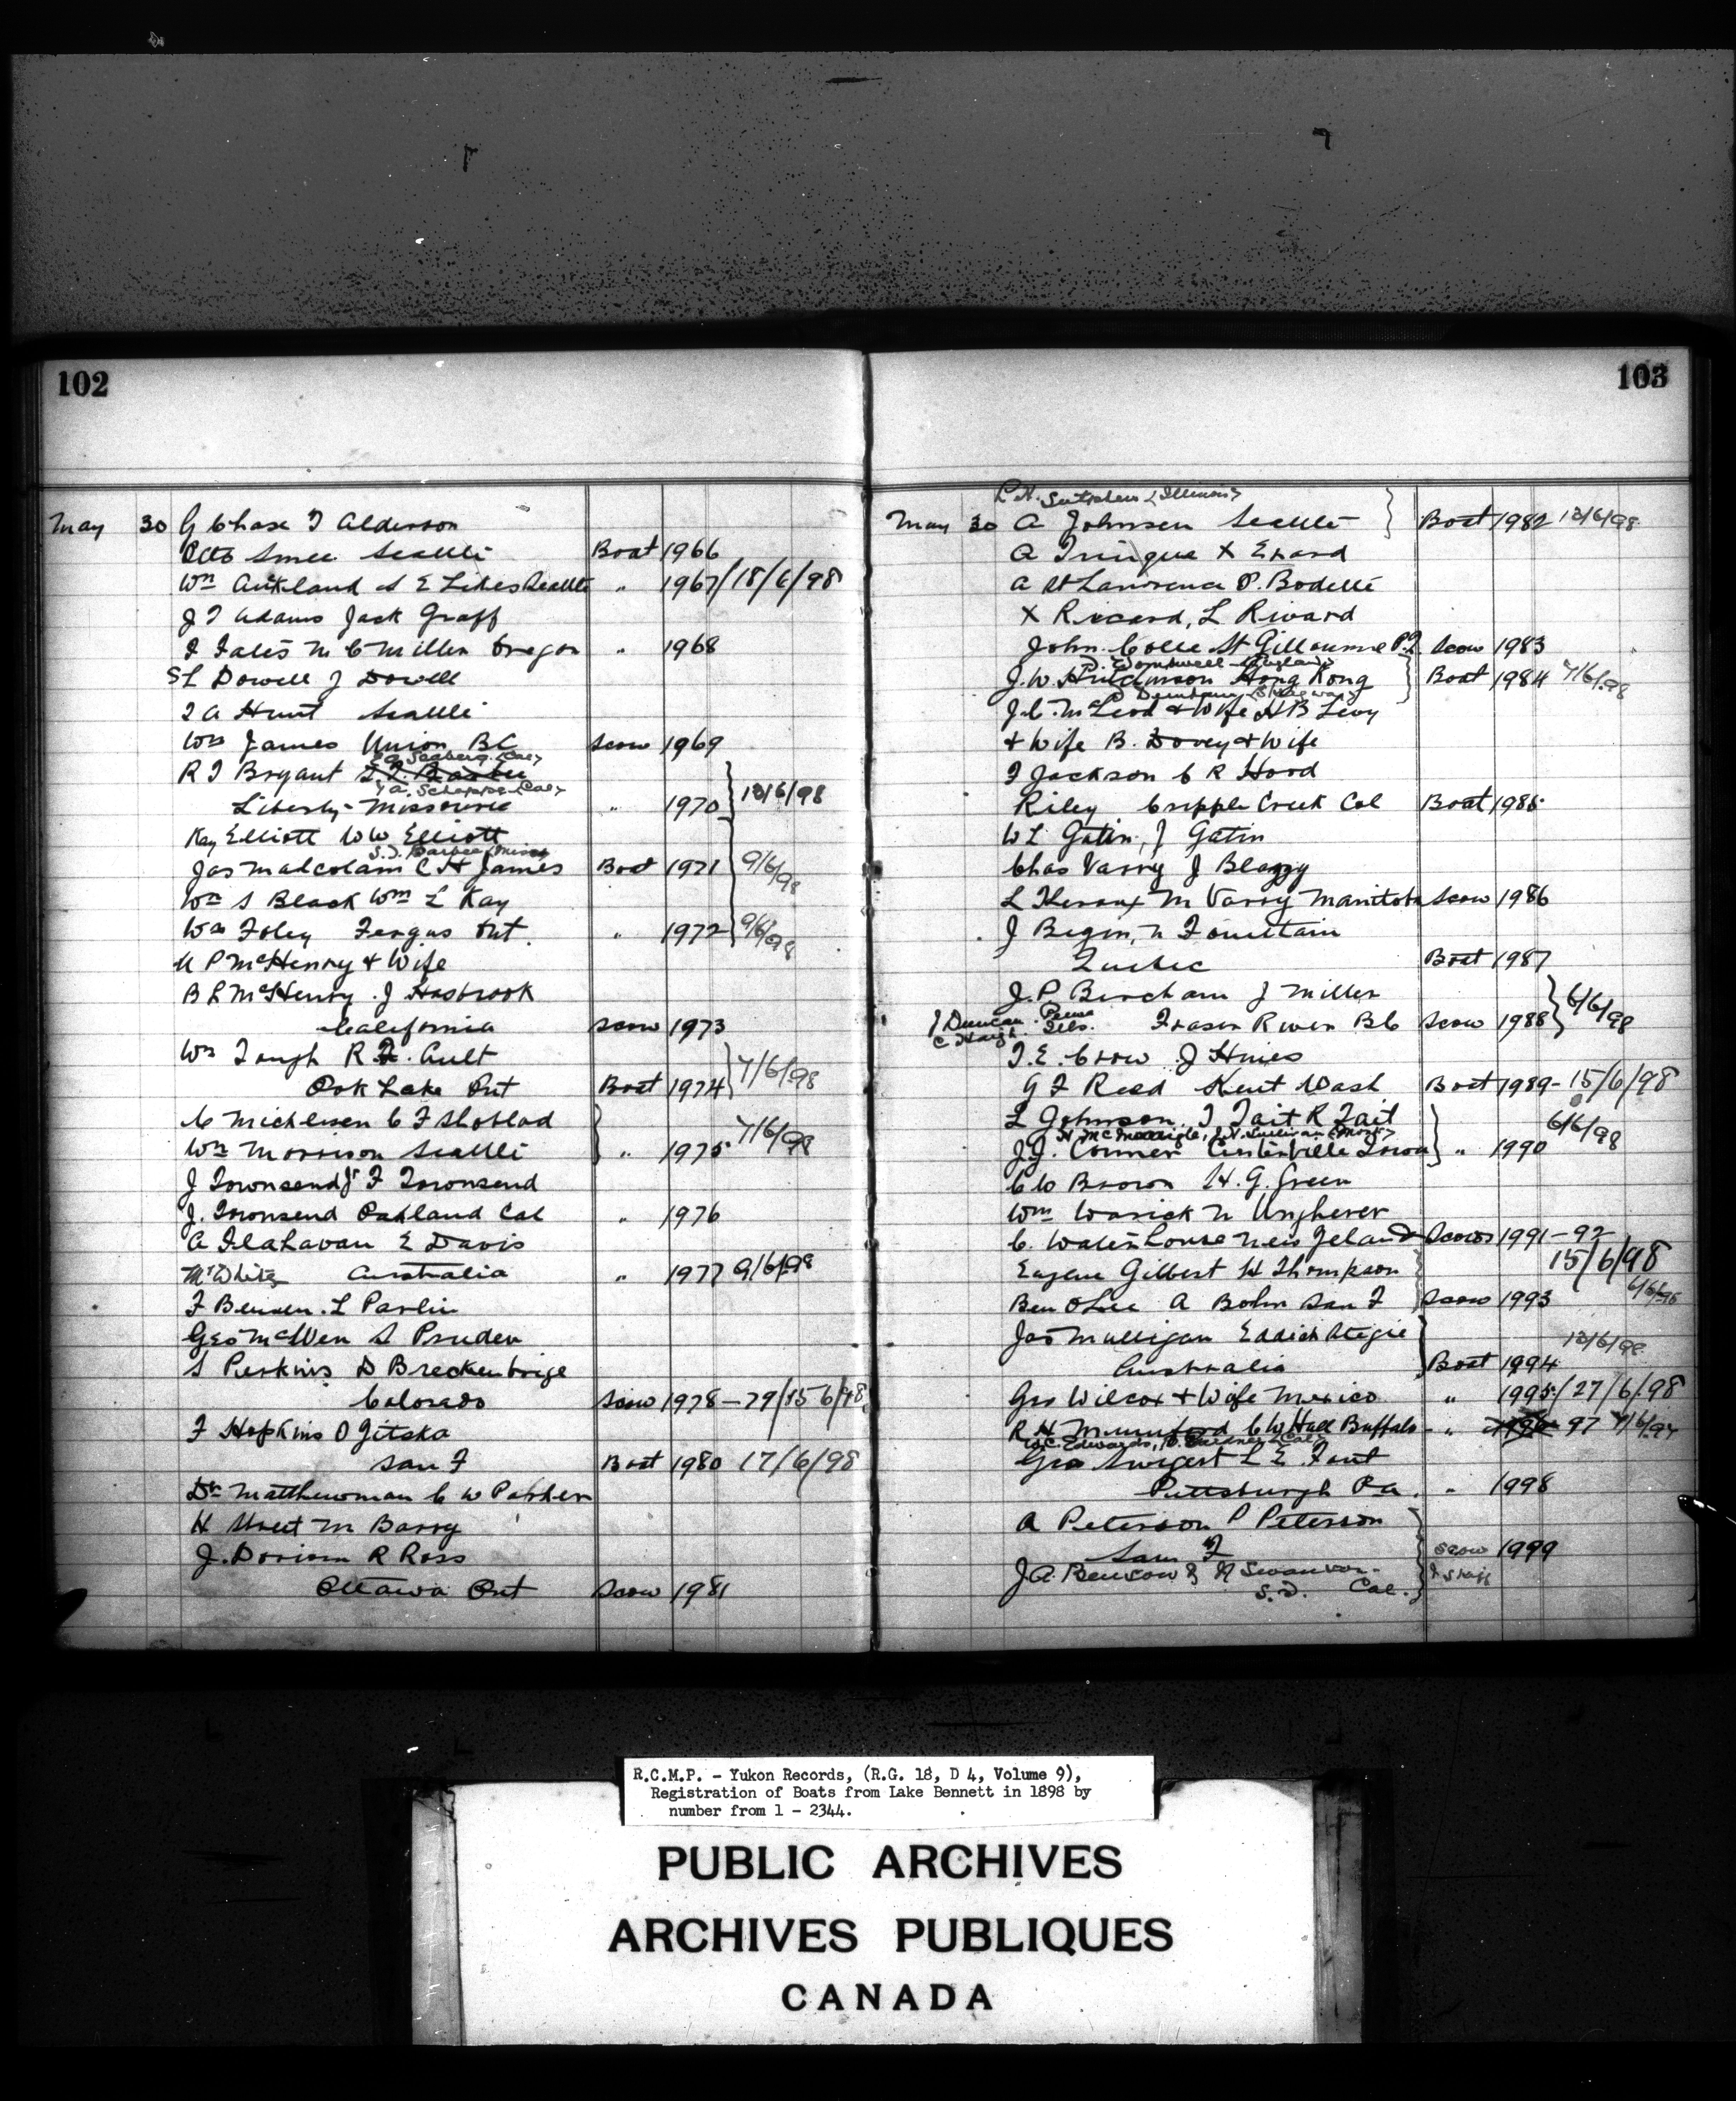 102
May 30 G Chase T Alderson
Otto Smee Seattle Boat 1966
Wm Auckland S E Likes Seattle " 1967/18/6/98
J T Adams Jack Graff
I Fales M C Miller Oregon " 1968
S L Dowell J Dowell
T A Hunt Seattle
Wm James Union BC Scow 1969
Seaberg (Cal)
R T Bryant
A. Schoppe (Cal)
Liberty Missourie " 1970 13/6/98
Kay Elliott W W Elliott
S.T. Barbee (Miss)
Jas Malcolam C H James Boat 1971 9/6/98
Wm S Black Wm L Kay
Wm Foley Fergus Ont. " 1972 9/6/98
U P McHenry & Wife
B L McHenry. J Hasbrook
California Scow 1973
Wm Tough R F. Ault
Oak Lake Ont Boat 1974 7/6/98
C Michlesen C F Shoblad
Wm Morrison Seattle " 1975 7/6/98
J Townsend Jr F Townsend
J. Townsend Oakland Cal " 1976
A Flahavan E Davis
Mr White Australia " 1977 9/6/98
F Bensen. L Parlin
Geo McWen S Pruden
S Perkins D Breckenbrige
Colorado Scow 1978-79/15 6/98
F Hopkins O Jitska
San F Boat 1980 17/6/98
Dr Matthewman C W Parker
H Street M Barry
J. Dorison R Ross
Ottawa Ont Scow 1981
103
(Illinois)
May 30 A Johnsen Seattle Boat 1982 13/6/98
A Tringue X Erard
A St Lawrence P. Bodelle
X Ricard, L Rivard
John Colle St Gilloume P.Q Scow 1983
Wombwell (England)
J. W Hutchinson Hong Kong Boat 1984 7/6/98
(Skagway)
J. C. McLeod & Wife H B Levy
& Wife B. Dovey & Wife
T Jackson C R Hood
Riley Cripple Creek Col Boat 1985
W L Gatin, J Gatin
Chas Varry J Blazzy
L Theroux M Varry Manitoba Scow 1986
J Begin, N Fountain
Quebec Boat 1987
J. P Bercham J Miller
J Duncan Peru Ills. Fraser River BC Scow 1988 6/6/98
C Haigh
T. E. Crow J Hines
G F Reed Kent Wash Boat 1989-15/6/98
L Johnson, T Tait R Tait
H McMonigle, J.H. Sullivan (Mass)
J. J. Conner Centerville Iowa " 1990 6/6/98
C W Brown H. G. Green
Wm Warick N Ungherer
C. Waterhouse New Zeland Scows 1991-92
15/6/98
Eugene Gilbert H Thompson
Ben O Lee A Bohn San F Scow 1993 6/6/98
Jas Mulligan Eddick Ategie
Australia Boat 1994 13/6/98
Geo Wilcox & Wife Mexico " 1995/27/6/98
R H Mumford C W Hall Buffalo " 1996 97 7/6/98
W.C. Edwards, D. Gardner (Cal)
Geo Swigert L E Fout
Pittsburgh Pa. " 1998
A Peterson P Peterson
San F Scow 1999
J A. Benson & N Swanson.
S. D. Cal.
R.C.M.P. - Yukon Records, (R.G. 18, D 4, Volume 9),
Registration of Boats from Lake Bennett in 1898 by
number from 1 - 2344.
PUBLIC ARCHIVES
ARCHIVES PUBLIQUES
CANADA